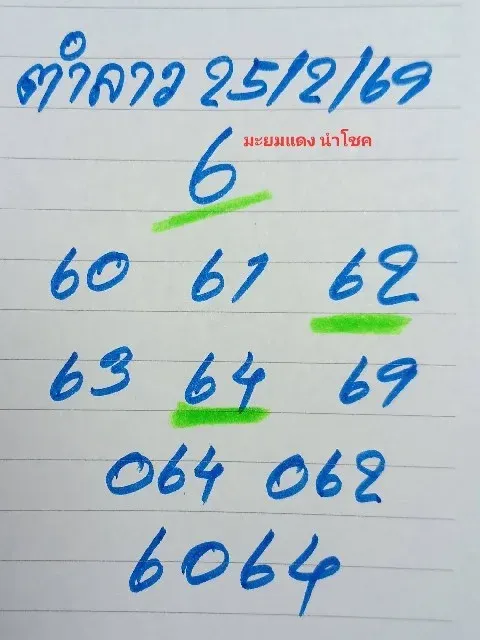 ตำลาว 25/2/69
มะยมแดง นำโชค
6
60 61 62
63 64 69
064 062
6064